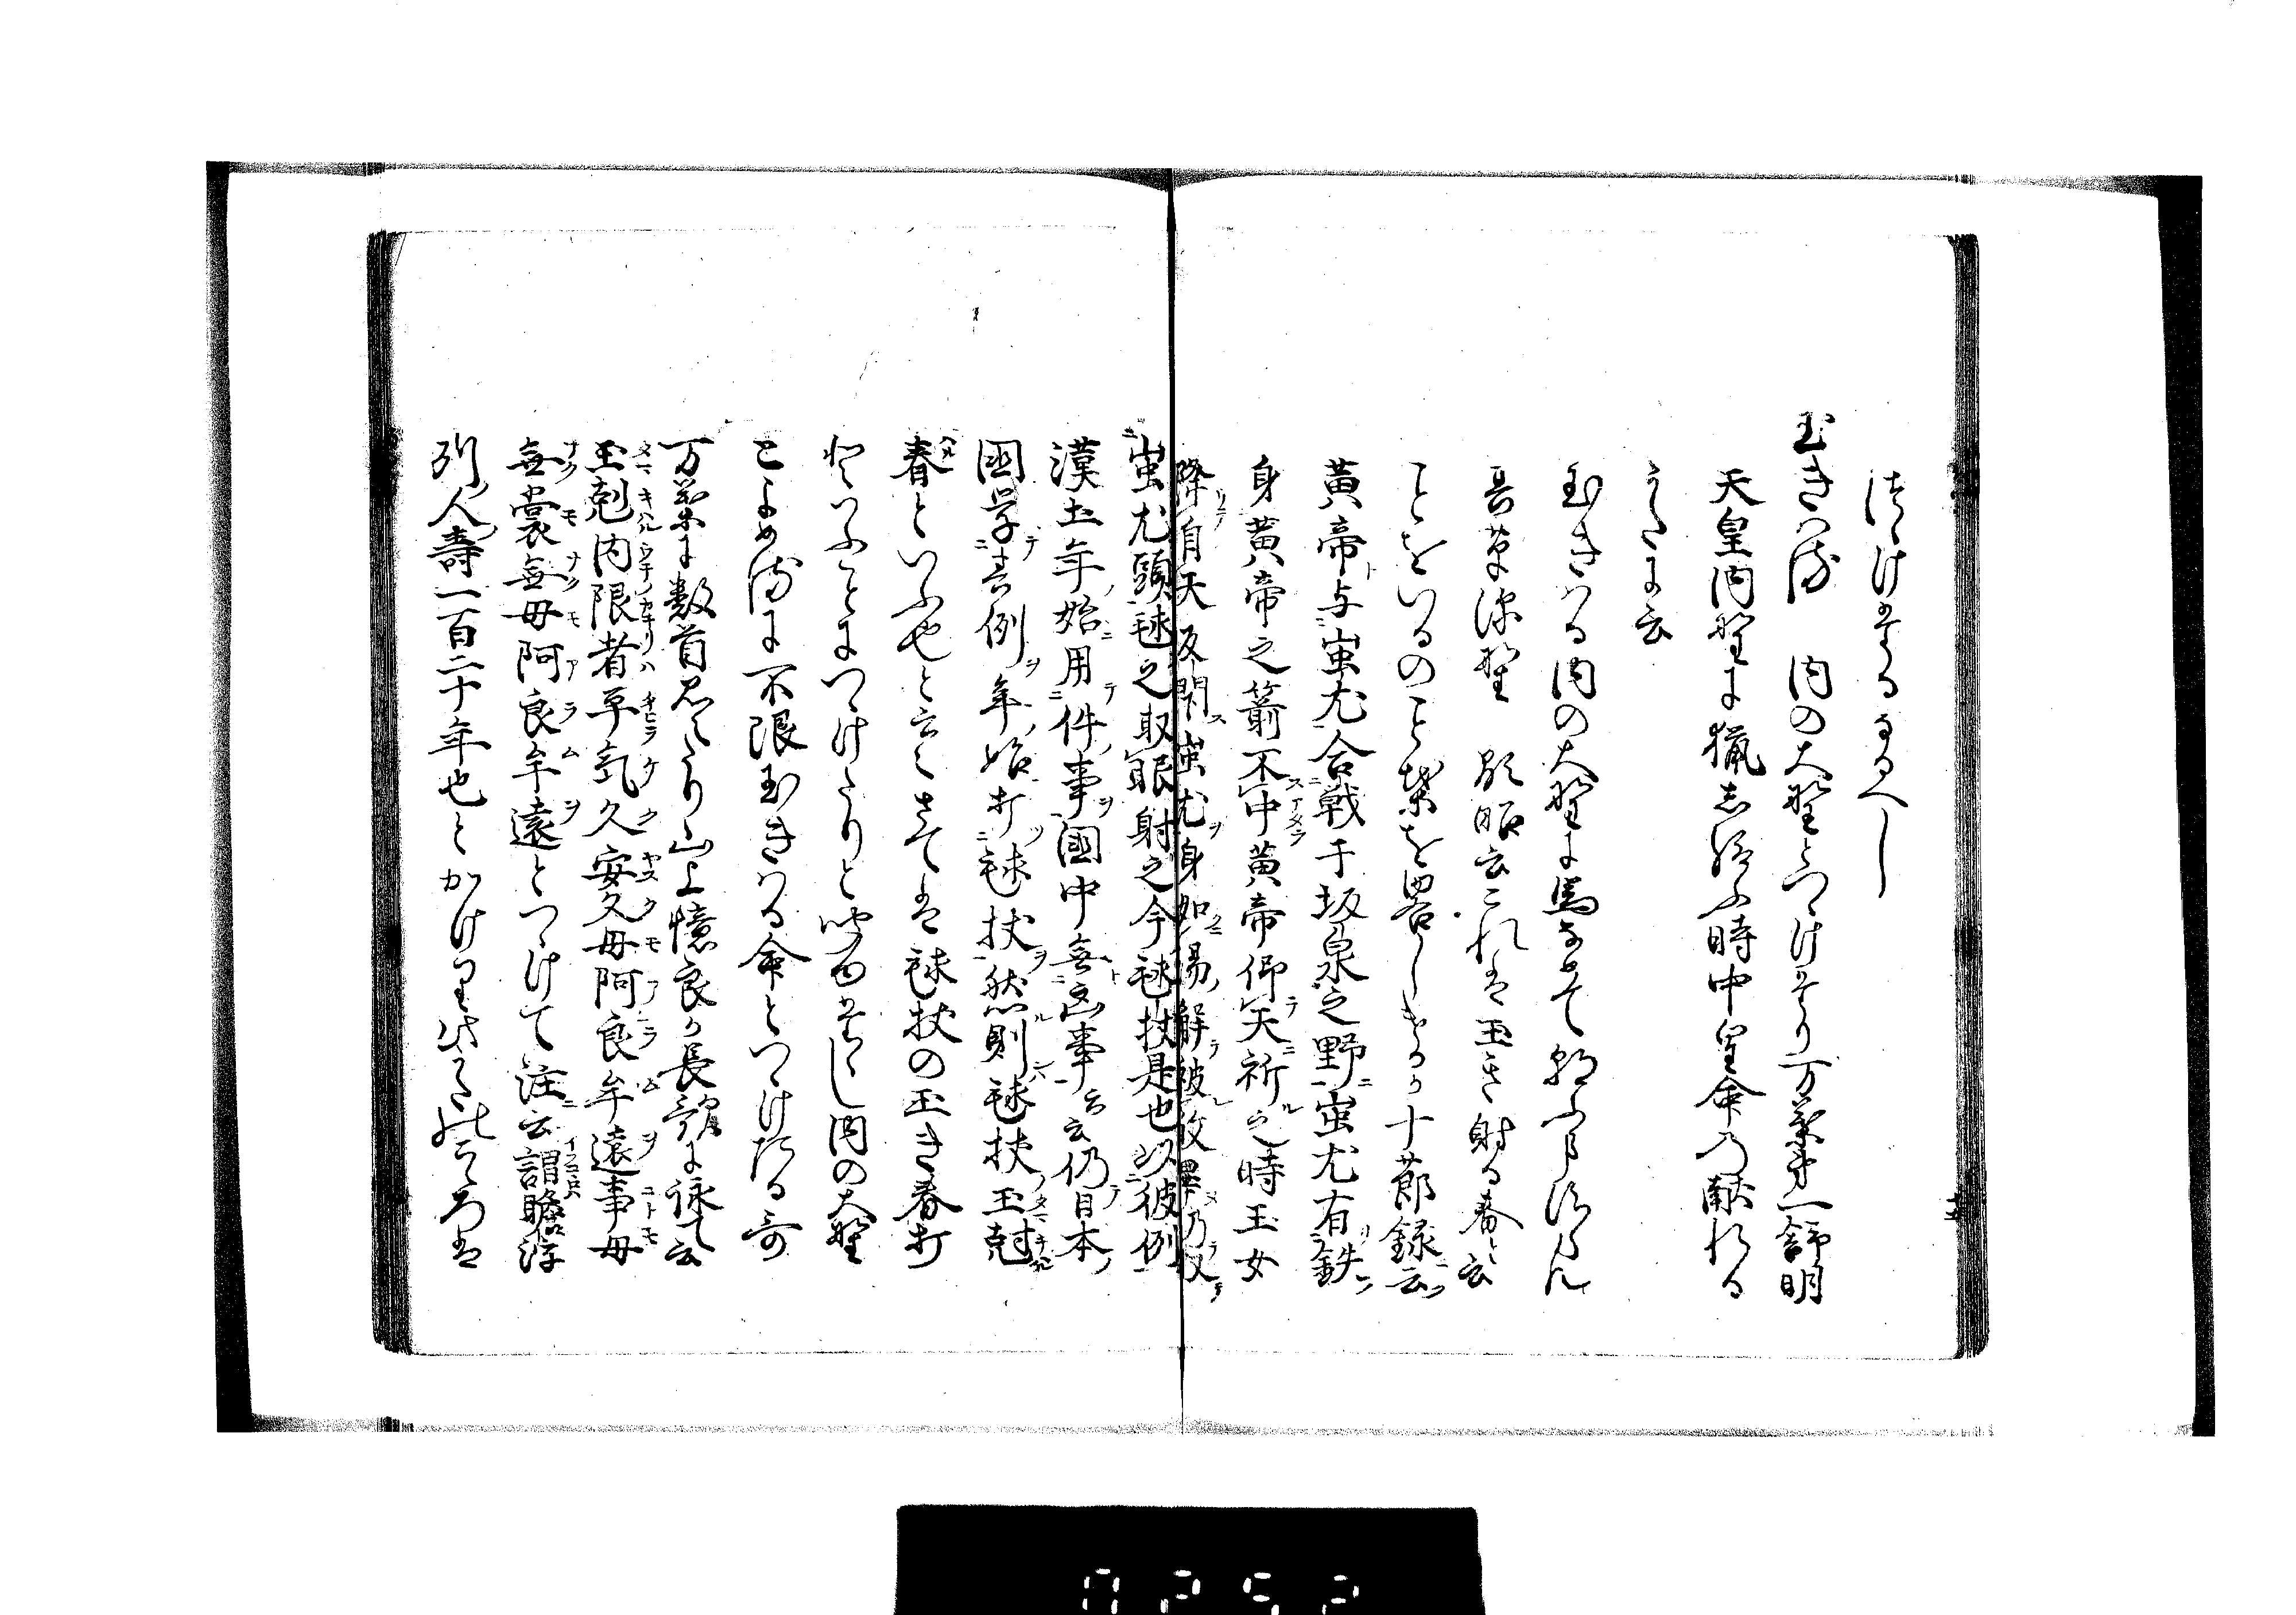 つゝけたるなるへし
玉きはる　内の大野とつゝけたり万葉第一舒明
天皇内野に猟し給ふ時中皇命の献れる
うたに云
玉きはる内の大野に馬なめて朝ふますらん
其草深野　顕昭云これは玉き射る春と云
ことをいるのこと葉を略しけるか十節録云
黄帝与蚩尤合戦于坂泉之野蚩尤有鉄
身黄帝之箭不中黄帝仰天祈之時玉女
降自天反閇蚩尤身如湯解被攻畢乃
蚩尤頭毬之取眼射之今毬杖是也以彼例
漢土年始用件事国中無凶事云云仍日本
国学其例年始打毬杖然則毬杖玉尅
春といふ也と云々さては毬杖の玉き春打
といふことにつゝけたりと聞ゆたゝし内の大野
とよめるに不限玉きはる命とつゝけたる哥
万葉に数首見えたり山上憶良か長謌に詠て云
玉尅内限者平気久安久母阿良牟遠事母
無裳無母阿良牟遠とつゝけて注云謂瞻浮
列人壽一百二十年也とかけり此こゝろは
十五